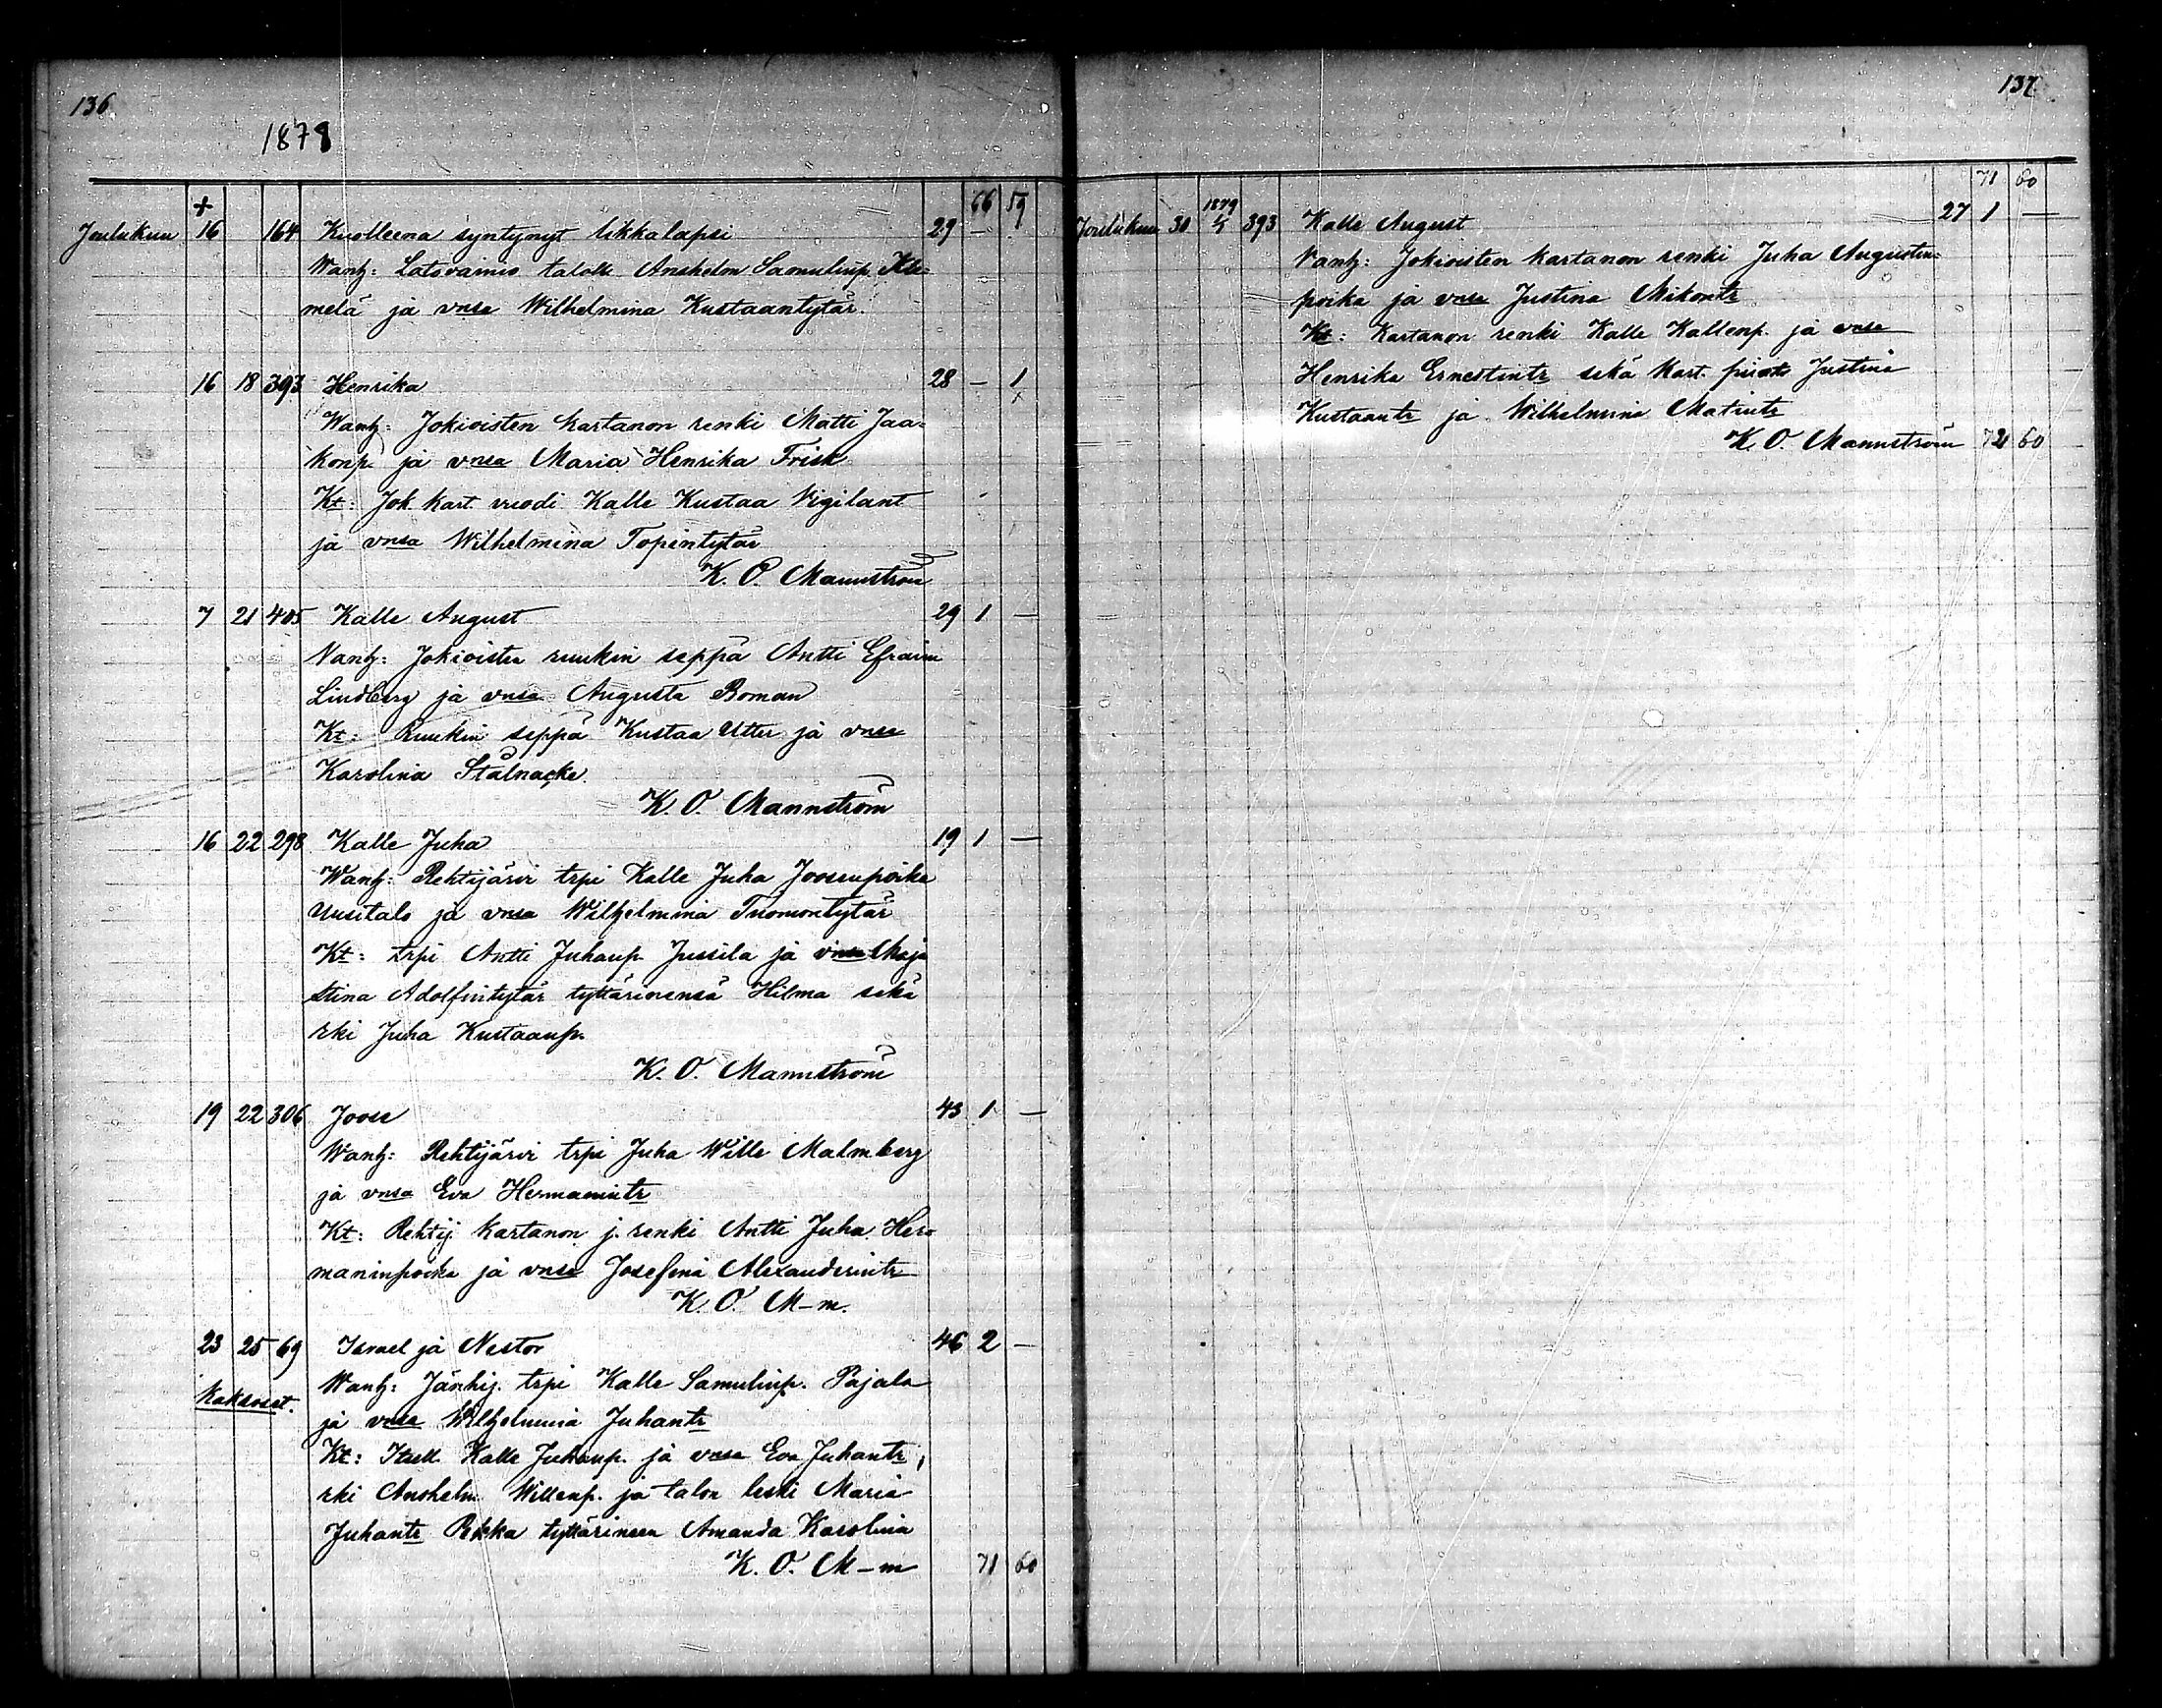 136
1878
66 59
Joulukuu + 16 164 Kuolleena syntynyt likkalapsi 29 —
Wanh: Latovainio taloll. Anshelm Samulinp. Kle-
melä ja vnsa Wilhelmina Kustaantytär.
16 18 393 Henrika 28 — 1
Wanh: Jokioisten kartanon renki Matti Jaa-
konp. ja vnsa Maria Henrika Frisk
Kt: Jok. kart. vuodi Kalle Kustaa Vigilant
ja vnsa Wilhelmina Topintytär
K. O. Mannström
7 21 405 Kalle August 29 1 —
Vanh: Jokioisten ruukin seppä Antti Efraim
Lindberg ja vnsa Augusta Boman
Kt: Ruukin seppä Kustaa Utter ja vnsa
Karolina Stålnacke.
K. O. Mannström
16 22 298 Kalle Juha 19 1 —
Wanh: Rehtijärvi trpi Kalle Juha Joosenpoika
Uusitalo ja vnsa Wilhelmina Tuomontytär
Kt: trpi Antti Juhanp. Jussila ja vnsa Maja
Stina Adolfintytär tyttärinensä Hilma sekä
rki Juha Kustaanp.
K. O. Mannström
19 22 306 Joose 43 1 —
Wanh: Rehtijärvi trpi Juha Wille Malmberg
ja vnsa Eva Hermannintr
Kt: Rehtij. kartanon j. renki Antti Juha Her-
maninpoika ja vnsa Josefina Alexanderintr
K. O. M-m.
23 25 69 Israel ja Nestor 46 2 —
kaksoset.
Wanh: Jänhij. trpi Kalle Samulinp. Pajala
ja vnsa Wilhelmina Juhantr
Kt: Itsell. Kalle Juhanp. ja vnsa Eva Juhantr,
rki Anshelm Willenp. ja talon leski Maria
Juhantr Pekka tyttärineen Amanda Karolina
K. O. M-m 71 60
137
71 60
Joulukuu 30 1879 4 393 Kalle August 27 1 —
Vanh: Jokioisten kartanon renki Juha Augustin-
poika ja vnsa Justina Mikontr
Kt: Kartanon renki Kalle Kallenp. ja vnsa
Henrika Ernestintr sekä kart. piiat Justina
Kustaantr ja Wilhelmina Matintr
K. O. Mannström 72 60